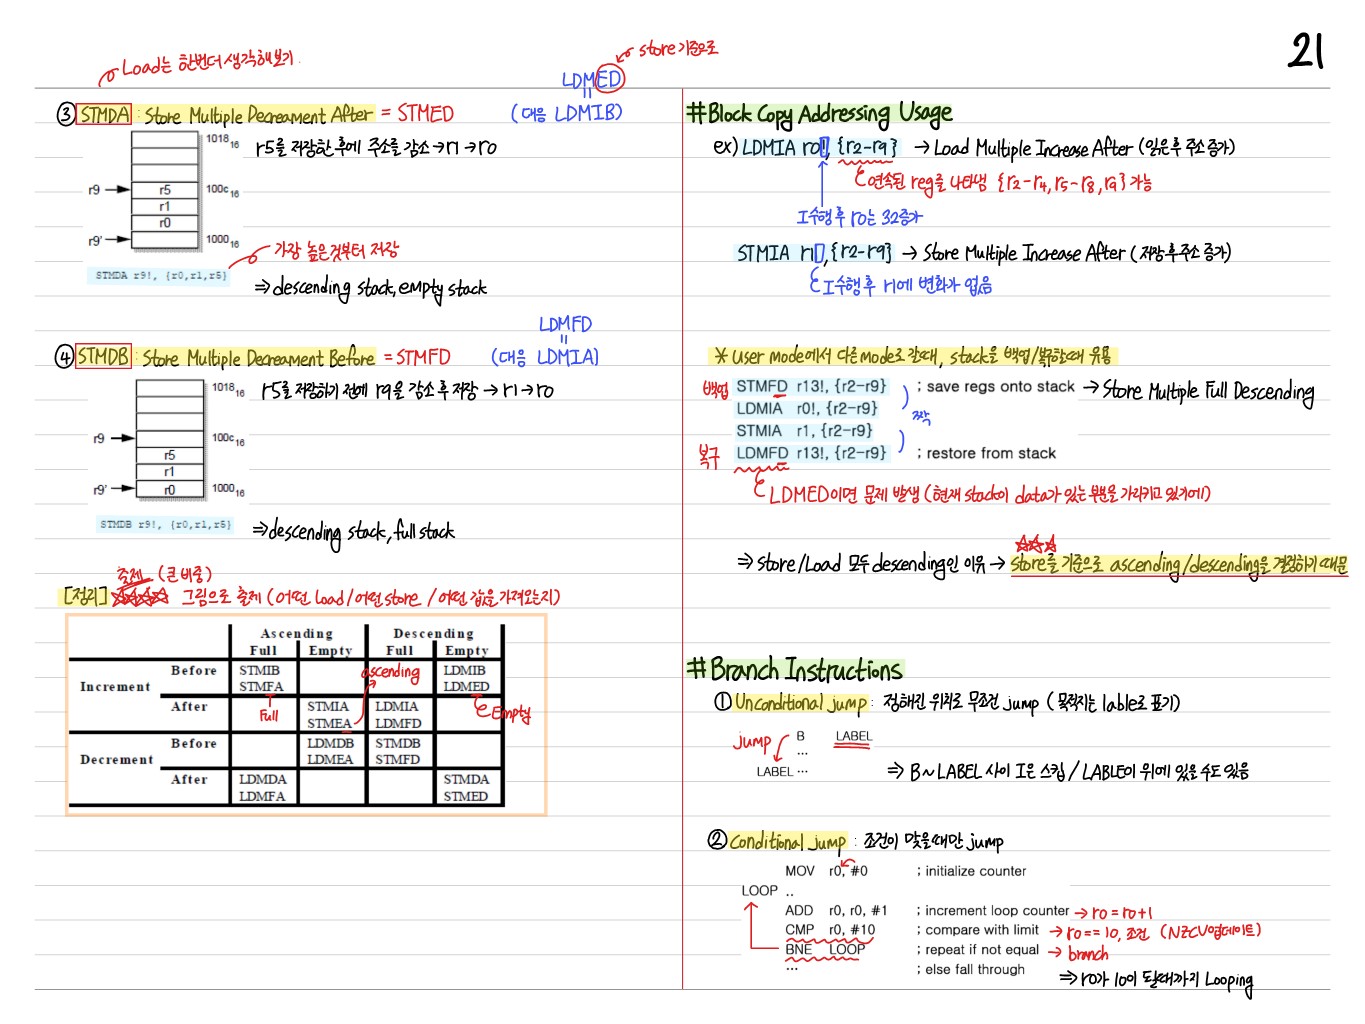 21
Load는 한번더 생각해보기.
store기준으로
LDMED
③ STMDA : Store Multiple Decreament After = STMED (대응 LDMIB)
r5를 저장한 후에 주소를 감소→r1→r0
1018 16
r9 → r5 100c 16
r1
r0
r9' → 1000 16
가장 높은것부터 저장
STMDA r9!, {r0,r1,r5}
⇒descending stack, empty stack
LDMFD
④ STMDB : Store Multiple Decreament Before = STMFD (대응 LDMIA)
r5를 저장하기 전에 r9을 감소 후 저장 → r1→r0
1018 16
r9 → 100c 16
r5
r1
r9' → r0 1000 16
STMDB r9!, {r0,r1,r5}
⇒descending stack, full stack
출제 (큰 비중)
[정리] ☆☆☆☆ 그림으로 출제 (어떤 load/어떤 store / 어떤 값을 가져오는지)
Ascending Descending
Full Empty Full Empty
Increment Before STMIB LDMIB
STMFA LDMED
After STMIA LDMIA
STMEA LDMFD
Full
ascending
Empty
Decrement Before LDMDB STMDB
LDMEA STMFD
After LDMDA STMDA
LDMFA STMED
#Block Copy Addressing Usage
ex) LDMIA r0!, {r2-r9} → Load Multiple Increase After (읽은후 주소증가)
연속된 reg를 나타냄 {r2-r4, r5-r8, r9} 가능
I수행 후 r0는 32증가
STMIA r1 , {r2-r9} → Store Multiple Increase After (저장 후 주소 증가)
I수행 후 r1에 변화가 없음
* User mode에서 다른 mode로 갈때, stack을 백업/복구할때 유용
백업 STMFD r13!, {r2-r9} ; save regs onto stack → Store Multiple Full Descending
LDMIA r0!, {r2-r9}
짝
STMIA r1, {r2-r9}
복구 LDMFD r13!, {r2-r9} ; restore from stack
LDMED이면 문제 발생 (현재 stack이 data가 있는 부분을 가리키고 있기에)
☆☆☆
⇒ Store/Load 모두 descending인 이유 → store를 기준으로 ascending/descending을 결정하기 때문
#Branch Instructions
① Unconditional jump : 정해진 위치로 무조건 jump ( 목적지는 lable로 표기)
jump B LABEL
...
LABEL ... ⇒ B~LABEL 사이 I은 스킵 / LABLE이 위에 있을 수도 있음
② Conditional jump : 조건이 맞을때만 jump
MOV r0, #0 ; initialize counter
LOOP ..
ADD r0, r0, #1 ; increment loop counter → r0 = r0+1
CMP r0, #10 ; compare with limit → r0 == 10, 조건 (NZCV업데이트)
BNE LOOP ; repeat if not equal → branch
... ; else fall through
⇒ r0가 10이 될때까지 Looping